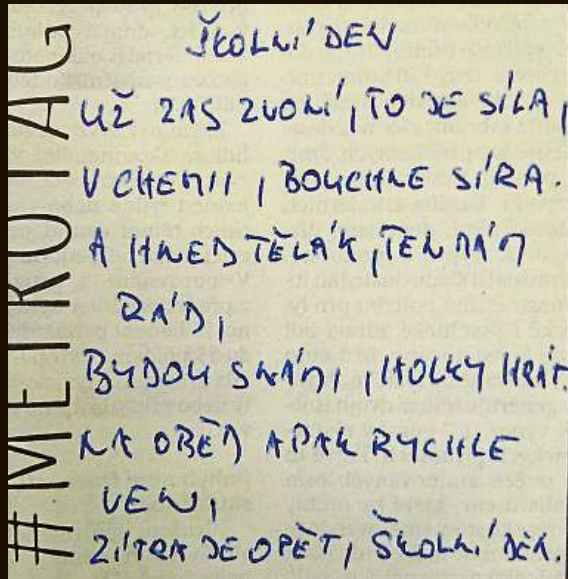 ŠKOLNÍ DEN
UŽ ZAS ZVONÍ, TO JE SÍLA,
V CHEMII, BOUCHNE SÍRA.
A HNED TĚLÁK, TEN MÁM
RÁD,
BUDOU S NÁMI, HOLKY HRÁT.
NA OBĚD A PAK RYCHLE
VEN,
ZÍTRA JE OPĚT, ŠKOLNÍ DEN.
#METROTAG